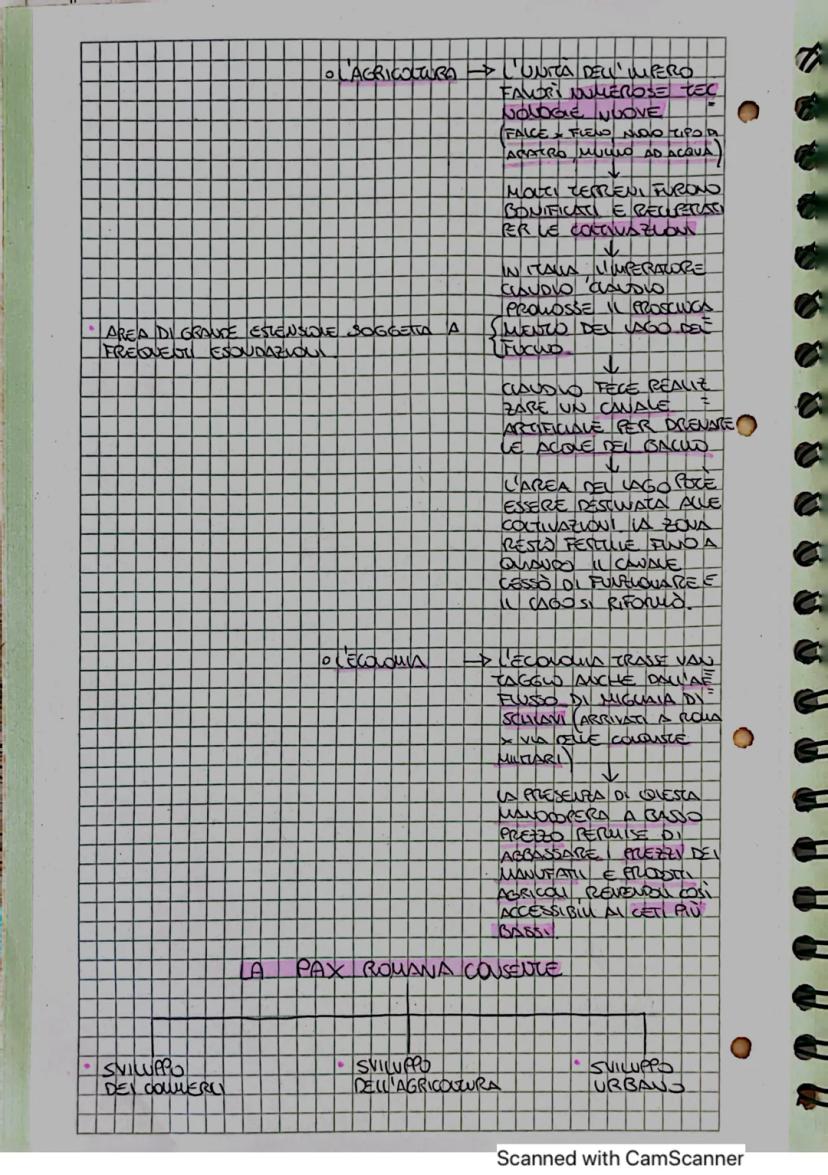 ○ L'AGRICOLTURA → L'UNITÀ DELL'IMPERO
FAVORÌ NUMEROSE TEC
NOLOGIE NUOVE
(FALCE x FIENO, NUOVO TIPO DI
ARATRO, MULINO AD ACQUA)
↓
MOLTI TERRENI FURONO
BONIFICATI E RECUPERATI
PER LE COLTIVAZIONI
↓
IN ITALIA, L'IMPERATORE
CLAUDIO CLAUDIO
PROMOSSE IL PROSCIUGA
MENTO DEL LAGO DEL
FUCINO.
• AREA DI GRANDE ESTENSIONE SOGGETTA A
FREQUENTI ESONDAZIONI.
↓
CLAUDIO FECE REALIZ
ZARE UN CANALE
ARTIFICIALE PER DRENARE
LE ACQUE DEL BACINO.
↓
L'AREA DEL LAGO POTÈ
ESSERE DESTINATA ALLE
COLTIVAZIONI. LA ZONA
RESTÒ FERTILE FINO A
QUANDO IL CANALE
CESSÒ DI FUNZIONARE E
IL LAGO SI RIFORMÒ.
○ L'ECONOMIA → L'ECONOMIA TRASSE VAN
TAGGIO ANCHE DALL'AF
FLUSSO DI MIGLIAIA DI
SCHIAVI (ARRIVATI A ROMA
x VIA DELLE CONQUISTE
MILITARI)
↓
LA PRESENZA DI QUESTA
MANODOPERA A BASSO
PREZZO PERMISE DI
ABBASSARE I PREZZI DEI
MANUFATTI E PRODOTTI
AGRICOLI, RENDENDOLI COSÌ
ACCESSIBILI AI CETI PIÙ
BASSI.
LA PAX ROMANA CONSENTE
• SVILUPPO
DEI COMMERCI
• SVILUPPO
DELL'AGRICOLTURA
• SVILUPPO
URBANO
Scanned with CamScanner